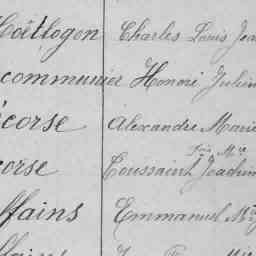 Coëtlogon Charles Louis Jea
communier Honoré Julien
corse Alexandre Marie
Fçois Mie
corse Toussaint Joachim
ffains Emmanuel M